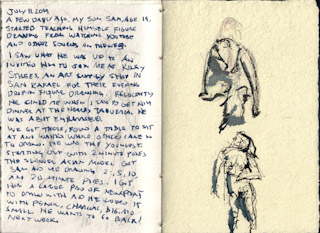 JULY 11, 2014
A FEW DAYS AGO, MY SON SAM, AGE 14,
STARTED TEACHING HIMSELF FIGURE
DRAWING FROM WATCHING YOUTUBE
AND OTHER SOURCES ON THE WEB.
I SAW WHAT HE WAS UP TO AN
INVITED HIM TO JOIN ME AT RILEY
STREET, AN ART SUPPLY STORE IN
SAN RAFAEL FOR THEIR EVENING
DROP-IN FIGURE DRAWING. RELUCTANTLY
HE JOINED ME WHEN I SAID I'D GET HIM
DINNER AT THE NEARBY TAQUERIA. HE
WAS A BIT EMBARRASSED.
WE GOT THERE, FOUND A TABLE TO SIT
AT AND WAITED WHILE OTHERS CAME IN
TO DRAW. HE WAS THE YOUNGEST.
STARTING OUT WITH 2 MINUTE POSES
THE SLENDER ASIAN MODEL GOT
SAM AND ME DRAWING 2, 5, 10,
AND 20 MINUTE POSES. I GOT
HIM A LARGE PAD OF NEWSPRINT
TO DRAW WITH AND HE LIKED IT
WITH PENCIL, CHARCOAL, BIG AND
SMALL. HE WANTS TO GO BACK!
NEXT WEEK.